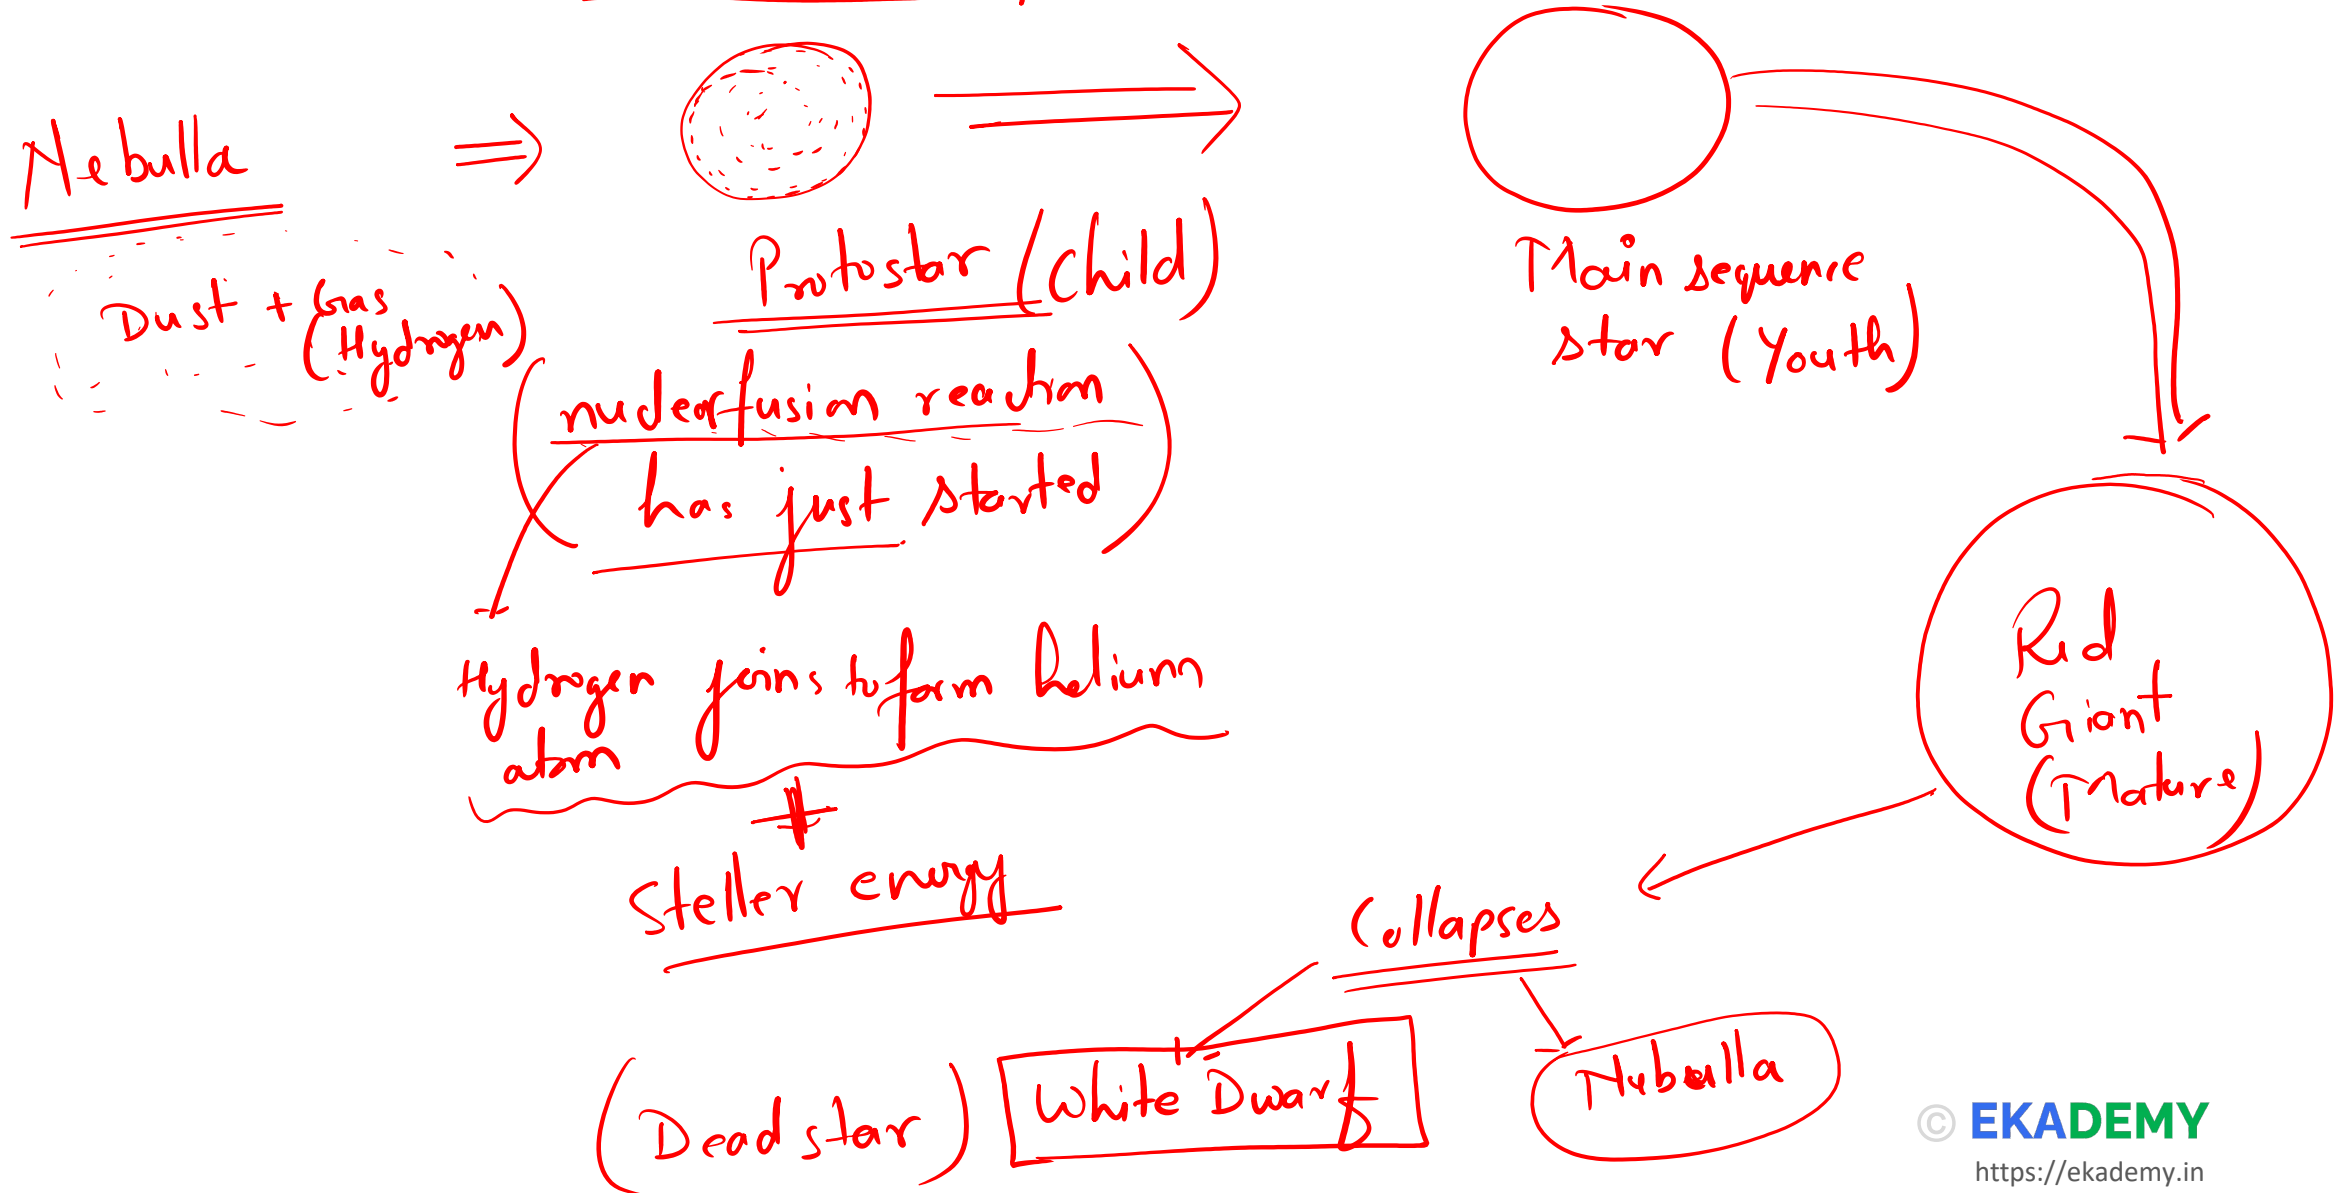 Nebulla
Dust + Gas
(Hydrogen)
Protostar (Child)
(nuclear fusion reaction
has just started)
Hydrogen joins to form helium
atom
Steller energy
Main sequence
star (Youth)
Red
Giant
(Mature)
Collapses
(Dead star)
White Dwarf
Nebulla
© EKADEMY
https://ekademy.in